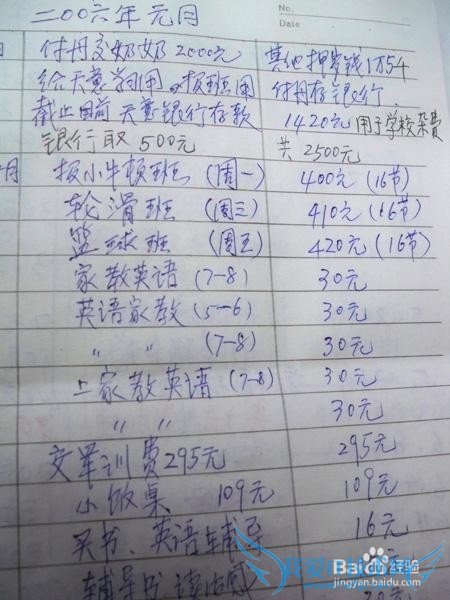 No.
Date
二00六年元月
付丹交奶奶2000元 其他押岁钱1万54
给天意 用 报班用 付丹存银行.
截止目前天意银行存款 1420元用于学校杂费
银行取500元 共2500元
月 报小牛顿班 (周一) 400元(16节)
轮滑班 (周三) 410元(16节)
篮球班 (周五) 420元(16节)
家教英语 (7-8) 30元
英语家教 (5-6) 30元
〃 〃 (7-8) 30元
上家教英语 (7-8) 30元
〃 〃 30元
交军训费295元 295元
小饭桌 109元 109元
买书、英语辅导 16元
辅导
Baidu经验
jingyan.baidu.com